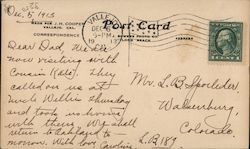 Dec, 5, 1913
MADE FOR J.H. COOPER
VALLEJO, CAL.
Post Card
CORRESPONDENCE
VALLEJO
DEC 6
5-PM
Dear Dad, We are
now visiting with
Cousin Kate. They
called on us at
Uncle Will's Thursday
and took us home
with them. We shall
return to Oakland to-
morrow. With love Caroline.
Mr. L. B. Sporleder,
Walsenburg
Colorado.
L.B. 189